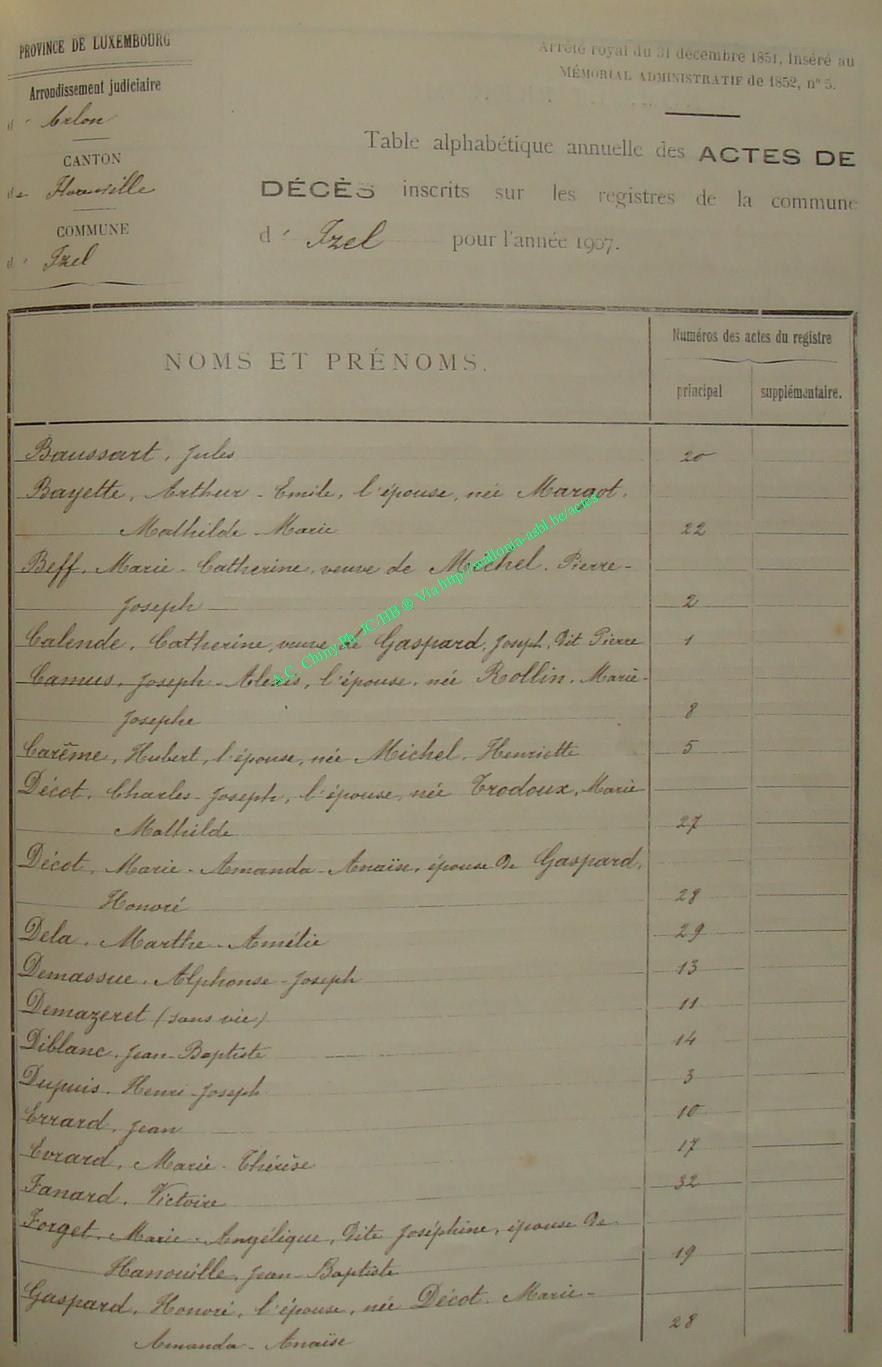 PROVINCE DE LUXEMBOURG
Arrondissement judiciaire
d' Arlon
CANTON
de Florenville
COMMUNE
d' Izel
Arrêté royal du 31 décembre 1851, inséré au
MÉMORIAL ADMINISTRATIF de 1852, n° 5.
Table alphabétique annuelle des ACTES DE
DÉCÈS inscrits sur les registres de la commune
d' Izel pour l'année 1907.
NOMS ET PRÉNOMS.
Numéros des actes du registre
principal
supplémentaire.
Baussart, Jules 20
Bayette, Arthur-Emile, l'épouse, née Margot,
Mathilde-Marie 22
Beff, Marie-Catherine, veuve de Michel, Pierre-
Joseph 2
Calende, Catherine, veuve de Gaspard, Joseph, dit Pierre 1
Camus, Joseph-Alexis, l'épouse, née Rollin, Marie-
Josephe 8
Carême, Hubert, l'épouse, née Michel, Henriette 5
Décot, Charles-Joseph, l'épouse, née Trodoux, Marie
Mathilde 27
Décot, Marie-Amanda-Anaïse, épouse de Gaspard,
Honoré 28
Dela, Marthe-Amélie 29
Demassue, Alphonse-Joseph 13
Demazeret (sans vie) 11
Diblanc, Jean-Baptiste 14
Dupuis, Henri-Joseph 3
Errard, Jean 10
Evrard, Marie-Thérèse 17
Fanard, Victoire 32
Forget, Marie-Angélique, dite Joséphine, épouse de
Hanouille, Jean-Baptiste 19
Gaspard, Honoré, l'épouse, née Décot, Marie-
Amanda-Anaïse 28
A.C. Chiny Ph. JC/HB ® Via http://wallonia-asbl.be/actes